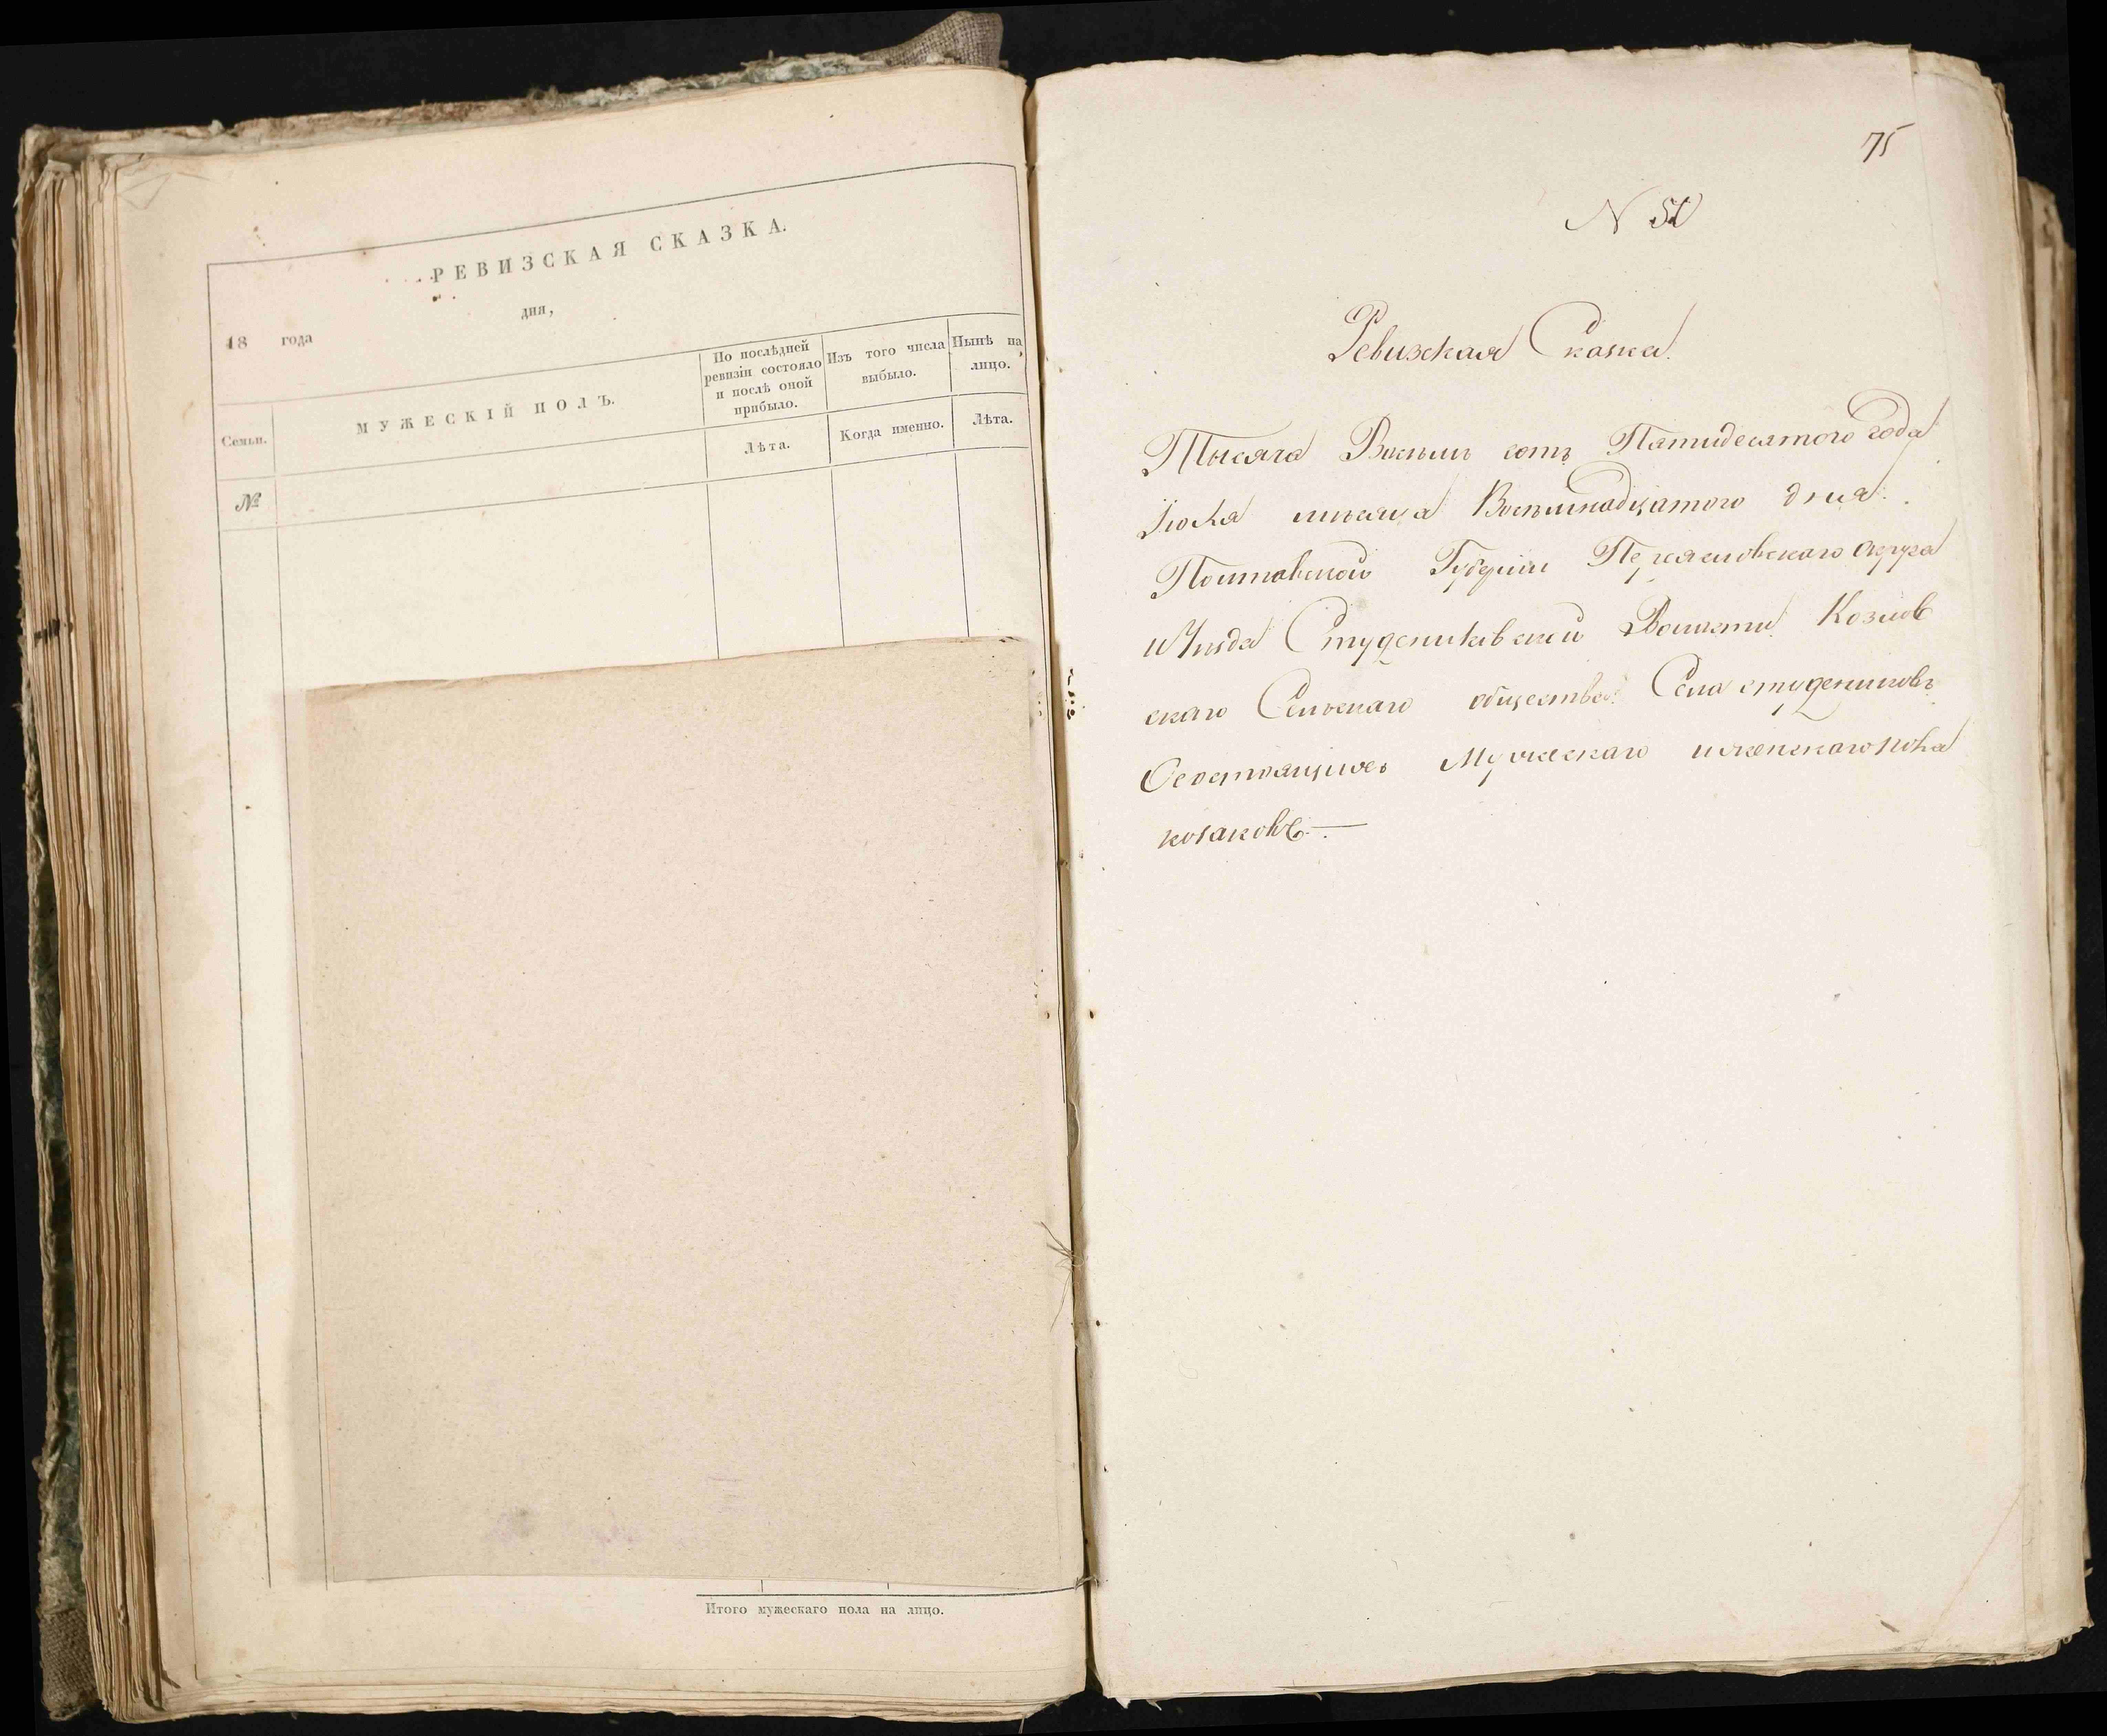 РЕВИЗСКАЯ СКАЗКА.
18 года
дня,
Семьи.
МУЖЕСКІЙ ПОЛЪ.
По послѣдней
ревизіи состояло
и послѣ оной
прибыло.
Изъ того числа
выбыло.
Нынѣ на
лицо.
Лѣта.
Когда именно.
Лѣта.
№
Итого мужескаго пола на лицо.
75
N
Ревизская Сказка.
Тысяча Восемь сотъ Пятидесятого года
Іюля месяца Восемнадцатого дня.
Полтавской Губерніи Переясловскаго округа
и Уезда Студениковской Волости Козлов
скаго Сельскаго общества Села студениковъ
Состоящихъ Мужескаго и женскаго пола
козаковъ. —